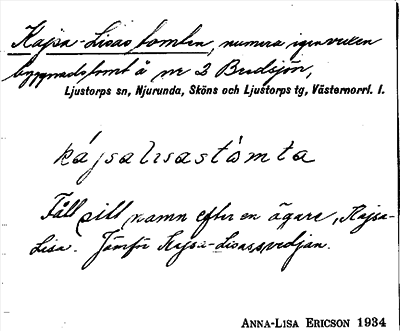 Kajsa-Lisas tomten, numera igenvuxen
byggnadstomt å nr 2 Brudsjön,
Ljustorps sn, Njurunda, Sköns och Ljustorps tg, Västernorrl. l.
kájsalisastòmta
Fått sitt namn efter en ägare, Kajsa-
Lisa. Jämför Kajsa-Lisassvedjan.
ANNA-LISA ERICSON 1934